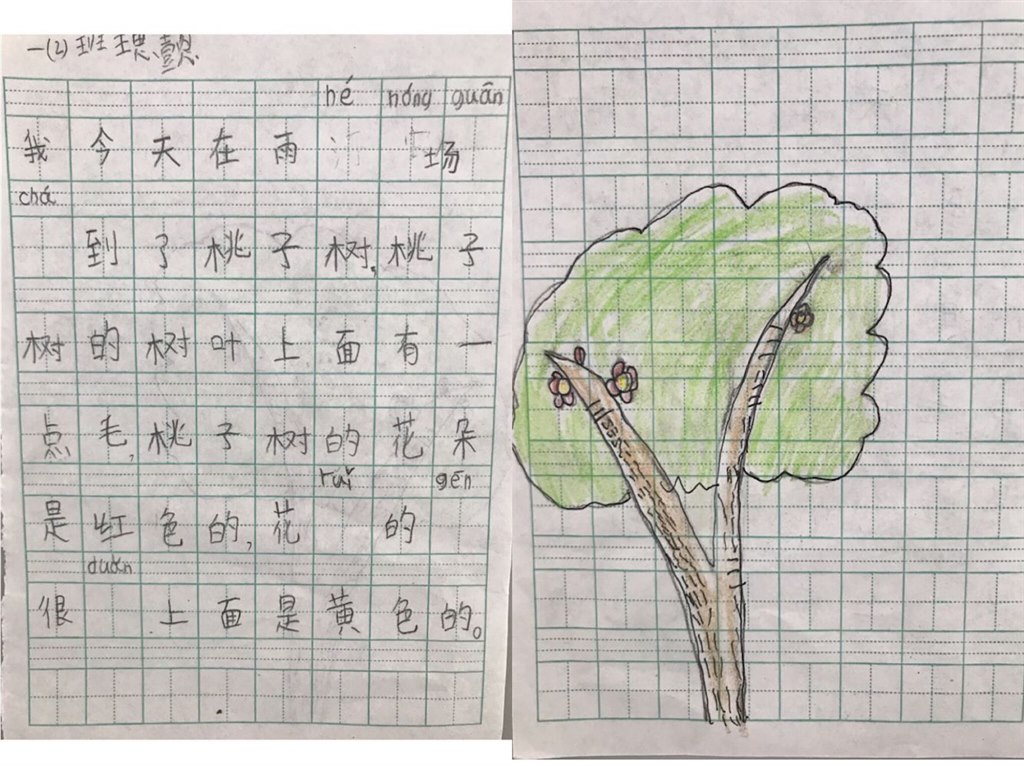 一(2)班 王思懿
hé nóng guān
我今天在雨 场
chá
到了桃子树,桃子
树的树叶上面有一
点毛,桃子树的花朵
ruǐ gēn
是红色的,花 的
duǎn
很 上面是黄色的。